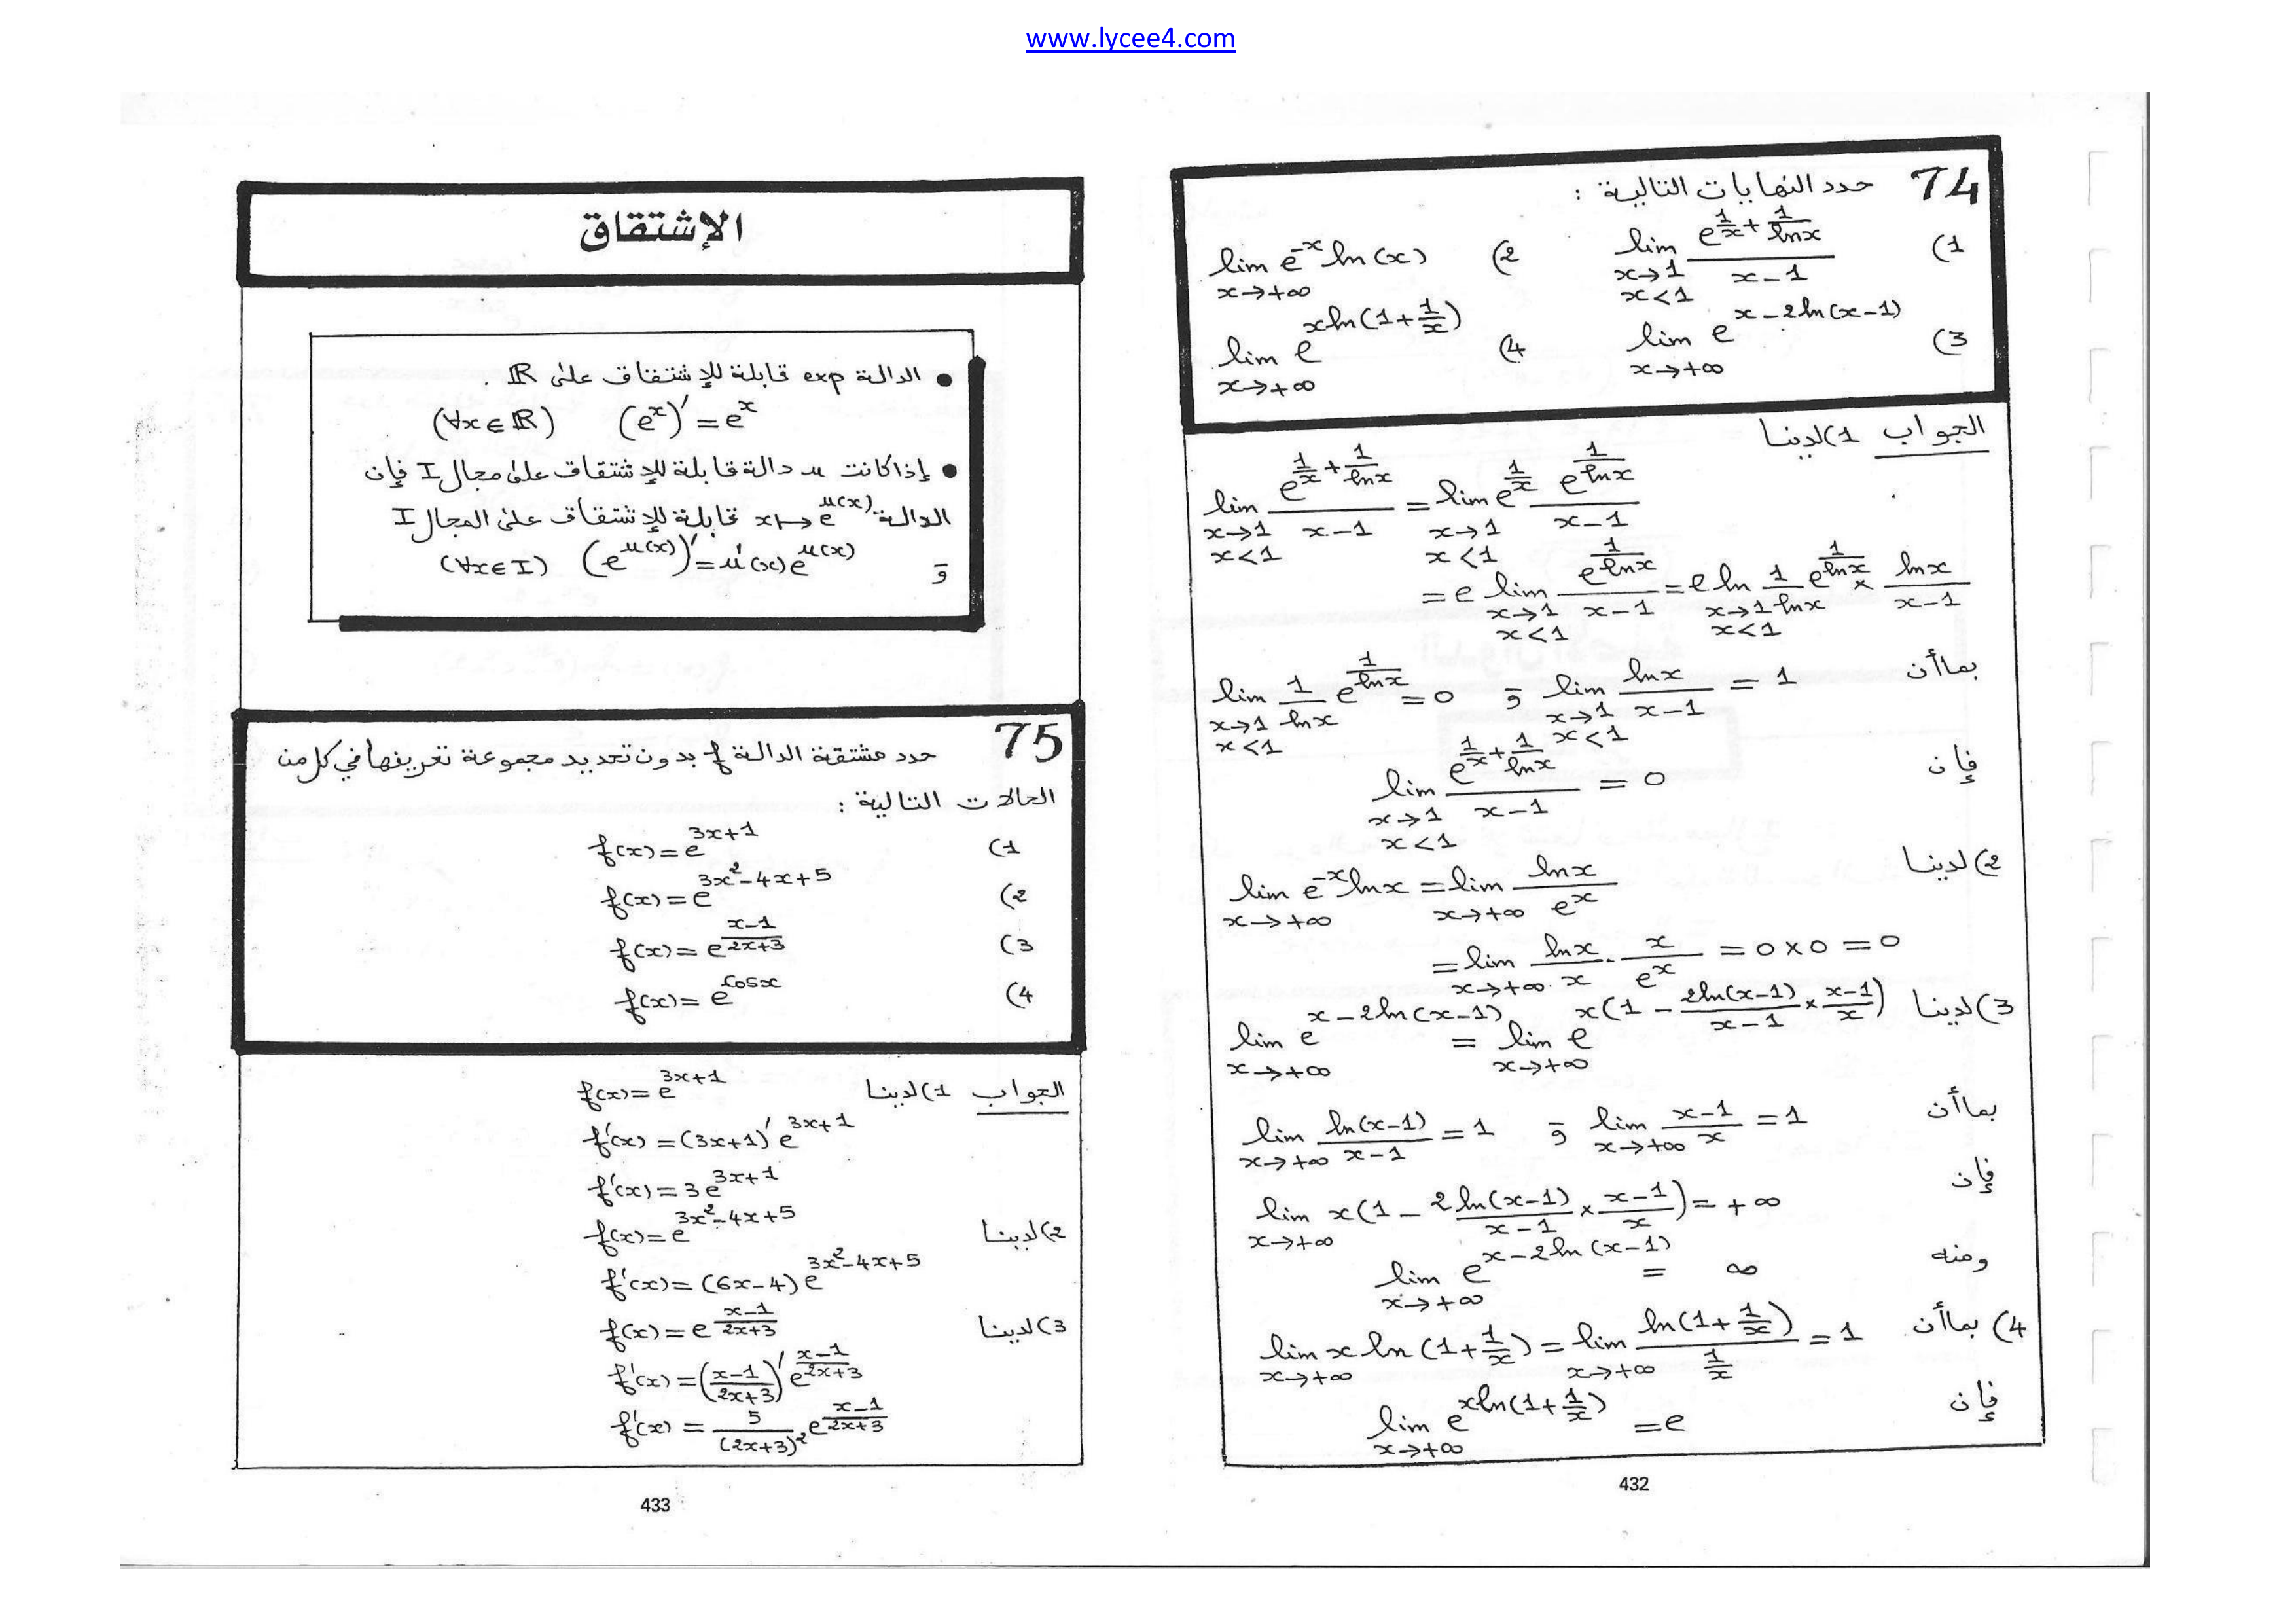 www.lycee4.com
74 حدد النهايات التالية :
1) lim_{x→1, x<1} e^{1/x + 1/lnx} / (x-1)   2) lim_{x→+∞} e^{-x} ln(x)
3) lim_{x→+∞} e^{x-2ln(x-1)}   4) lim_{x→+∞} e^{xln(1+1/x)}
الجواب 1) لدينا
lim_{x→1, x<1} e^{1/x + 1/lnx} / (x-1) = lim_{x→1, x<1} e^{1/x} e^{1/lnx} / (x-1)
= e lim_{x→1, x<1} e^{1/lnx} / (x-1) = e ln_{x→1, x<1} 1/lnx e^{1/lnx} × lnx/(x-1)
بما أن lim_{x→1, x<1} 1/lnx e^{1/lnx} = 0 و lim_{x→1, x<1} lnx/(x-1) = 1
فإن lim_{x→1, x<1} e^{1/x + 1/lnx} / (x-1) = 0
2) لدينا lim_{x→+∞} e^{-x} lnx = lim_{x→+∞} lnx/e^x
= lim_{x→+∞} lnx/x . x/e^x = 0×0 = 0
3) لدينا lim_{x→+∞} e^{x-2ln(x-1)} = lim_{x→+∞} e^{x(1 - 2ln(x-1)/(x-1) × (x-1)/x)}
بما أن lim_{x→+∞} ln(x-1)/(x-1) = 1 و lim_{x→+∞} (x-1)/x = 1
فإن lim_{x→+∞} x(1 - 2ln(x-1)/(x-1) × (x-1)/x) = +∞
ومنه lim_{x→+∞} e^{x-2ln(x-1)} = ∞
4) بما أن lim_{x→+∞} x ln(1+1/x) = lim_{x→+∞} ln(1+1/x) / (1/x) = 1
فإن lim_{x→+∞} e^{xln(1+1/x)} = e
432
الإشتقاق
• الدالة exp قابلة للإشتقاق على ℝ .
(∀x∈ℝ) (e^x)' = e^x
• إذا كانت u دالة قابلة للإشتقاق على مجال I فإن
الدالة x↦e^{u(x)} قابلة للإشتقاق على المجال I
و (∀x∈I) (e^{u(x)})' = u'(x)e^{u(x)}
75 حدد مشتقة الدالة f بدون تحديد مجموعة تعريفها في كل من
الحالات التالية :
1) f(x) = e^{3x+1}
2) f(x) = e^{3x²-4x+5}
3) f(x) = e^{(x-1)/(2x+3)}
4) f(x) = e^{cosx}
الجواب 1) لدينا f(x) = e^{3x+1}
f'(x) = (3x+1)' e^{3x+1}
f'(x) = 3e^{3x+1}
2) لدينا f(x) = e^{3x²-4x+5}
f'(x) = (6x-4) e^{3x²-4x+5}
3) لدينا f(x) = e^{(x-1)/(2x+3)}
f'(x) = ((x-1)/(2x+3))' e^{(x-1)/(2x+3)}
f'(x) = 5/(2x+3)² e^{(x-1)/(2x+3)}
433